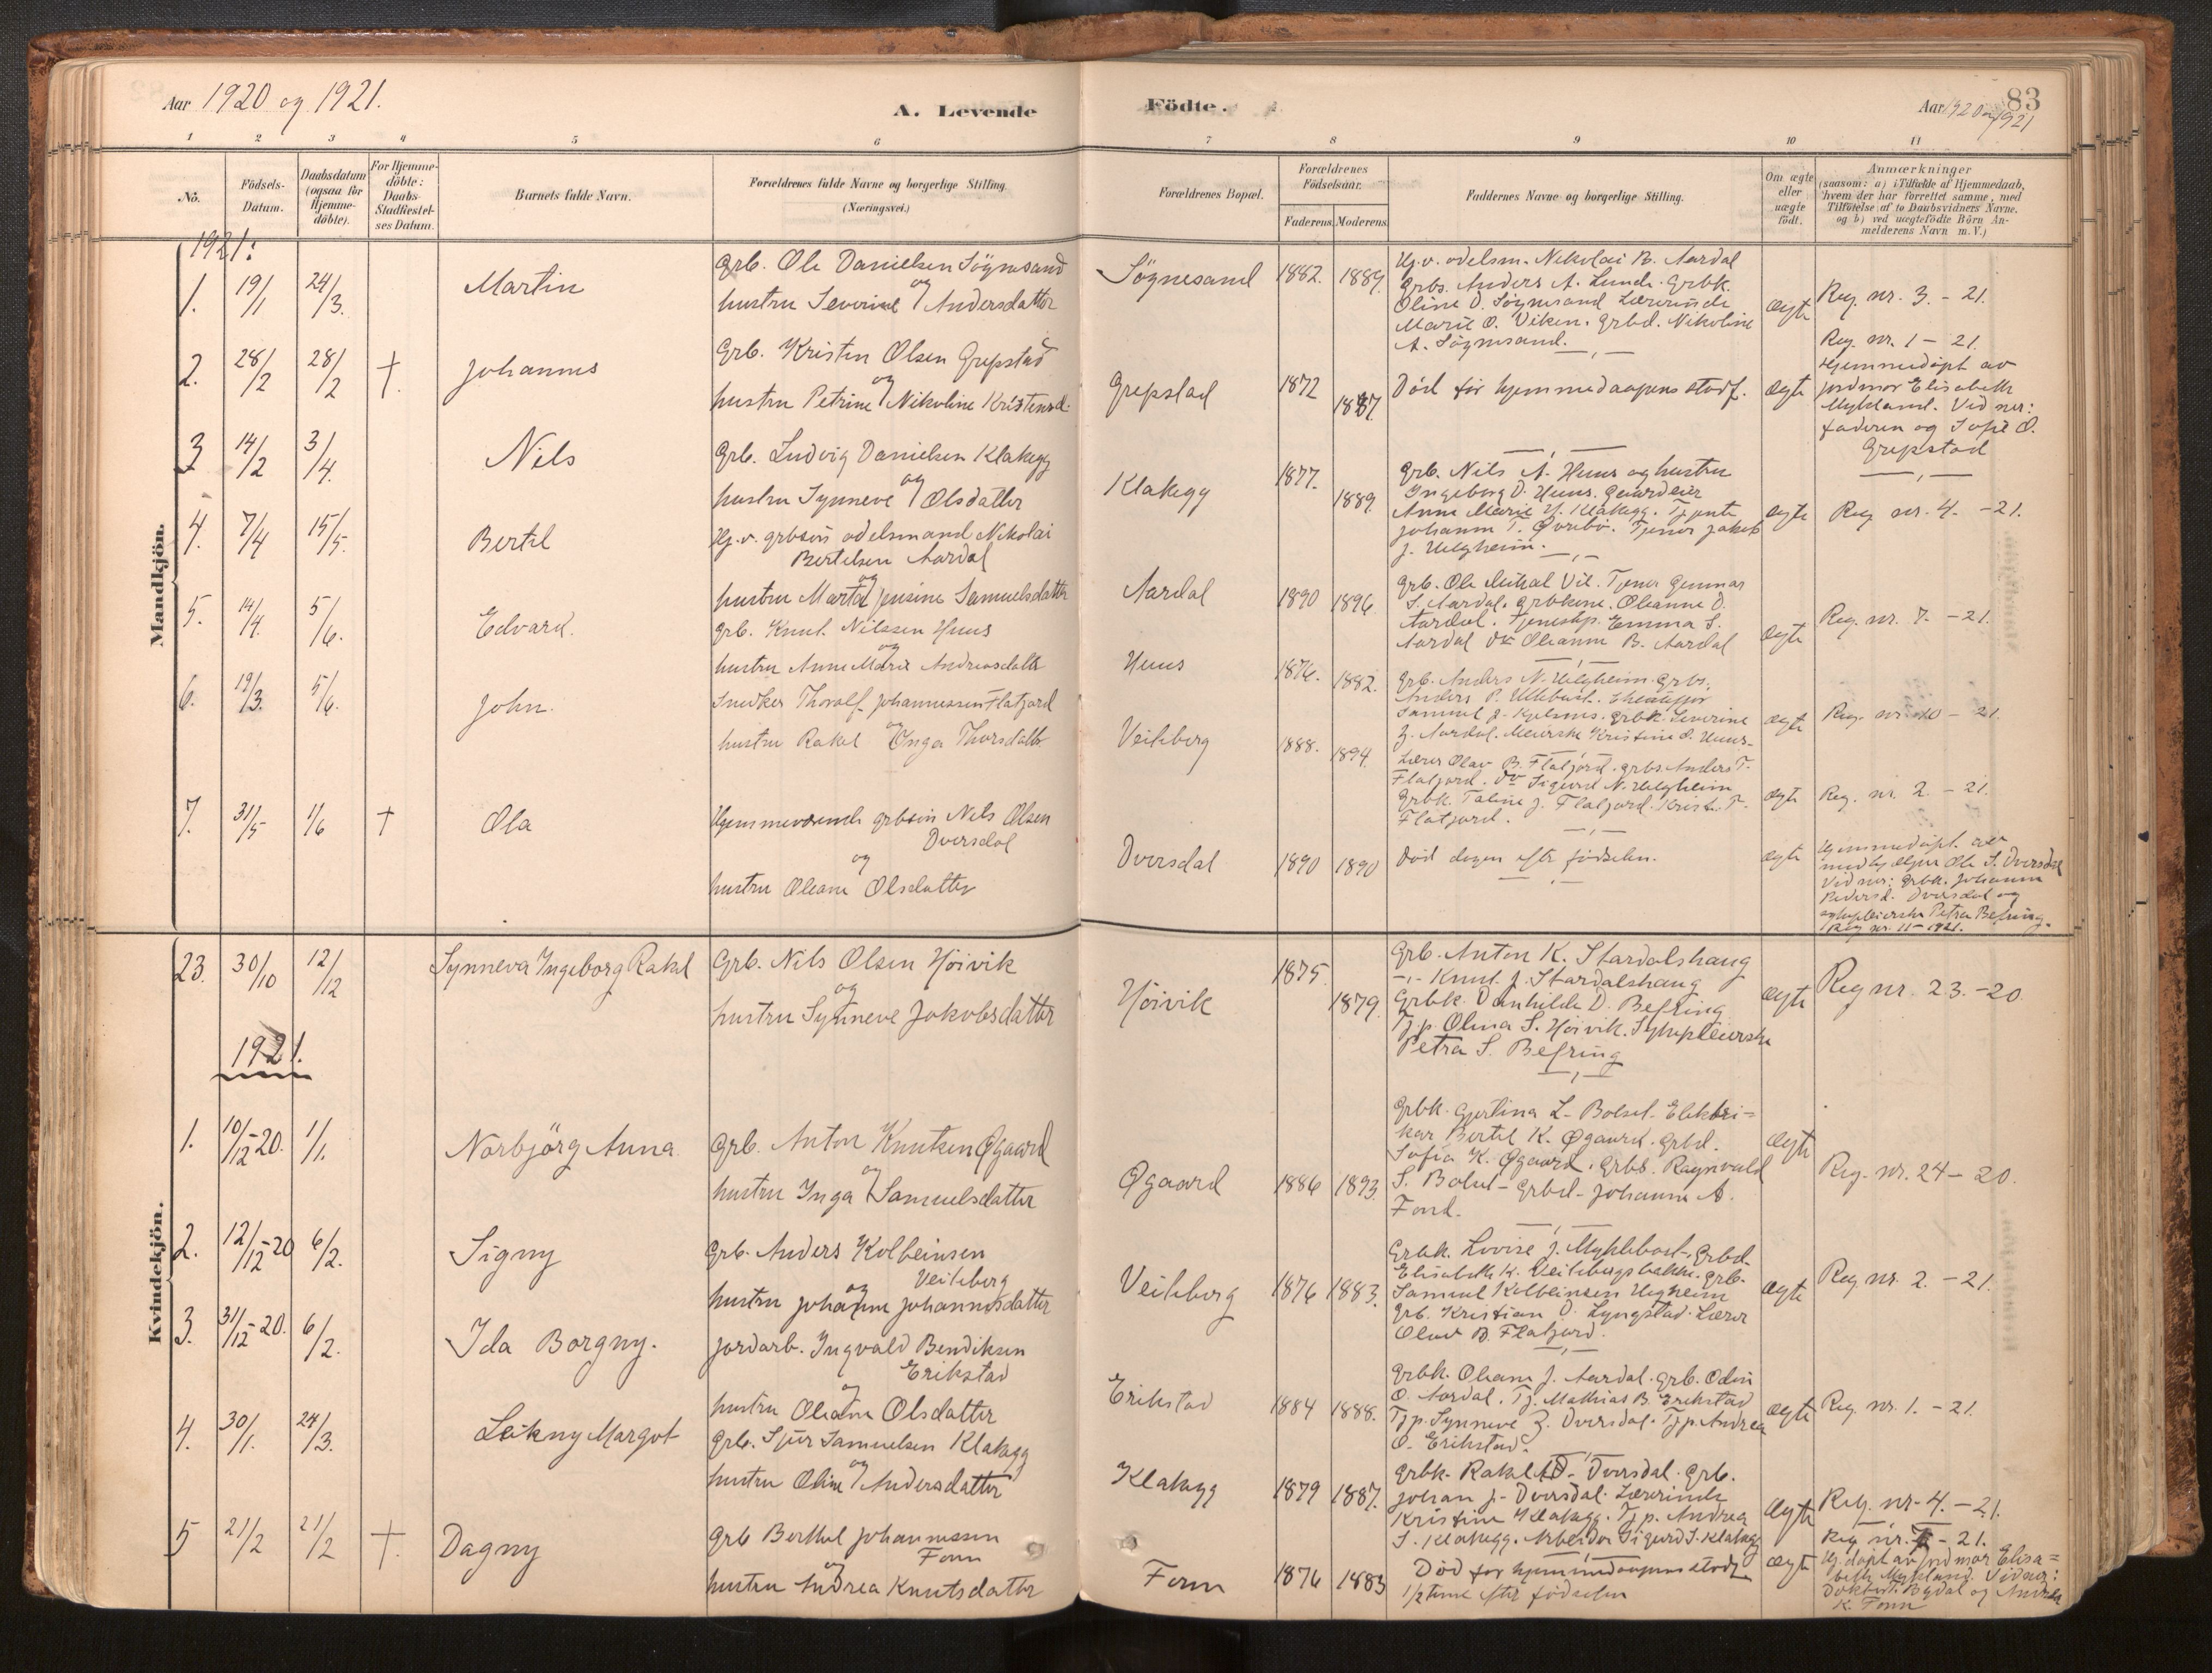 Aar 1920 og 1921.
A. Levende
Födte.
Aar 1920 og 1921
83
1 2 3 4 5 6 7 8 9 10 11
No.
Födsels-Datum.
Daabsdatum (ogsaa for Hjemme-döbte).
For Hjemme-döbte: Daabs-Stadfæstel-ses Datum.
Barnets fulde Navn.
Forældrenes fulde Navne og borgerlige Stilling. (Næringsvei.)
Forældrenes Bopæl.
Forældrenes Födselsaar.
Faderens Moderens
Faddernes Navne og borgerlige Stilling.
Om ægte eller uægte födt.
Anmærkninger
(saasom: a) i Tilfælde af Hjemmedaab, hvem der har forrettet samme, med Tilföielse af to Daabsvidners Navne, og b) ved uægtefödte Börn An-melderens Navn m. V.)
Mandkjön.
1921:
1. 19/1 24/3. Martin
Grb. Ole Danielsen Sögnesand
og
hustru Severine Andersdatter
Sögnesand 1882. 1889.
Hj.v. odelsm. Nikolai B. Aardal
Grbs. Anders A. Lunde. Grbk.
Oline D. Sögnesand Lærerinde
Marie O. Viken. Grbd. Nikoline
A. Sögnesand.
ægte Reg. nr. 3. - 21.
2. 28/2 28/2 † Johannes
Grb. Kristen Olsen Grepstad
og
hustru Petrine Nikoline Kristensd.
Grepstad 1872 1887
Död för hjemmedaapens stadf.
ægte
Reg. nr. 1 - 21.
Hjemmedöpt av
jordmor Elisabeth
Mykland. Vidner:
faderen og Sofie O.
Grepstad
3 14/2 3/4. Nils
Grb. Ludvig Danielsen Klakegg
og
hustru Synneve Olsdatter
Klakegg 1877. 1889.
Grb. Nils A. Huus og hustru
Ingeborg D. Huus.
Anne Marie Klakegg. Tjente
Johanne T. Øvrebö. Tjener Jakob
J. Helgheim.
ægte Reg. nr. 4. - 21.
4. 7/4 15/5. Bertel
Hj.v. grbsön odelsmand Nikolai
Bertelsen Aardal
og
hustru Marta Jensine Samuelsdatter
Aardal 1890 1896.
Grb. Ole Mikal Vik. Tjener Gunnar
S. Aardal. Grbkone. Oleanne D.
Aardal. Tjenestp. Emma S.
Aardal Oleanne B. Aardal
ægte Reg. nr. 7. - 21.
5. 14/4. 5/6. Edvard.
Grb. Knut Nilssen Huus
og
hustru Anne Marie Andreasdatte
Huus 1876. 1882.
Grb. Anders N. Helgheim. Grbs.
Anders P.
Samuel J. Kjelsnes. Grbk. Severine
Z. Aardal. Meierske Kristine O. Huus.
ægte Reg. nr. 10 - 21.
6. 19/3. 5/6. John.
Snedker Thoralf Johannessen Flatjord
og
hustru Rakel Inga Thorsdatter
Veiteberg 1888. 1894.
Lærer Olav B. Flatjord. Grbs. Anders T.
Flatjord. Sigurd N. Helgheim
Grbk. Taline J. Flatjord. Krist. T.
Flatjord.
ægte Reg. nr. 2. - 21.
7. 31/5 1/6 † Ola
Hjemmeværende grbsön Nils Olsen
Dversdal
og
hustru Oleane Olsdatter
Dversdal 1890 1890
Död dagen efter födselen.
ægte
Hjemmedöpt av
Ole S. Dversdal
Vidner: Grbk. Johanne
Pedersd. Dversdal og
sykepleierske Petra Befring.
Reg nr. 11 - 1921.
Kvindekjön.
23. 30/10 12/12 Synneva Ingeborg Rakel
Grb. Nils Olsen Höivik
og
hustru Synneve Jakobsdatter
Höivik 1875 1879.
Grb. Anton K. Stardalshaug
-,- Knut J. Stardalshaug
Grbk. Danhilde D. Befring
Tj.p. Olina S. Höivik. Sykepleierske
Petra S. Befring
ægte Reg nr. 23. - 20.
1921.
1. 10/12-20. 1/1. Norbjörg Anna
Grb. Anton Knutsen Øgaard
og
hustru Inga Samuelsdatter
Øgaard 1886 1893.
Grbk. Gjertina L. Bolset. Elektri=
ker Bertel K. Øgaard. Grbd.
Sofia K. Øgaard. Grbs. Ragnvald
S. Bolset - Grbd. Johanne A.
Fond.
ægte Reg. nr. 24 - 20.
2. 12/12-20 6/2. Signy
Grb. Anders Kolbeinsen
Veiteberg
og
hustru Johanne Johannesdatter
Veiteberg 1876 1883.
Grbk. Lovise J. Myklebost. Grbd.
Elisabeth K. Veitebergsbakke. Grb.
Samuel Kolbeinsen Hegheim
Grb. Kristian O. Lyngstad. Lærer
Olav B. Flatjord.
ægte Reg nr. 2. - 21.
3. 31/12-20. 6/2. Ida Borgny.
Jordarb. Ingvald Bendiksen
Erikstad
og
hustru Oleane Olsdatter
Erikstad 1884 1888.
Grbk. Oleane J. Aardal. Grb. Odin
O. Aardal. Tj. Mathias B. Erikstad
Tjp. Synneve Z. Dversdal. Tjp. Andrea
O. Erikstad.
ægte Reg. nr. 1. - 21.
4. 30/1. 24/3. Leikny Margot
Grb. Sjur Samuelsen Klakegg
og
hustru Oline Andersdatter
Klakegg 1879 1887.
Grbk. Rakel D. Dversdal. Grb.
Johan J. Dversdal. Lærerinde
Kristine Klakegg. Tj.p. Andrea
S. Klakegg. Arbeider Sigurd S. Klakegg
ægte Reg. nr. 4. - 21.
5 21/2 21/2 †. Dagny
Grb Berthel Johannessen
Fonn
og
hustru Andrea Knutsdatter
Fonn 1876 1883
Död för hjemmedaapens stadf.
1/2 time efter födselen
ægte
Reg nr. - 21.
Hj. döpt av jordmor Elisa=
beth Mykland. Vidner:
Bydal og Andrea
K. Fonn